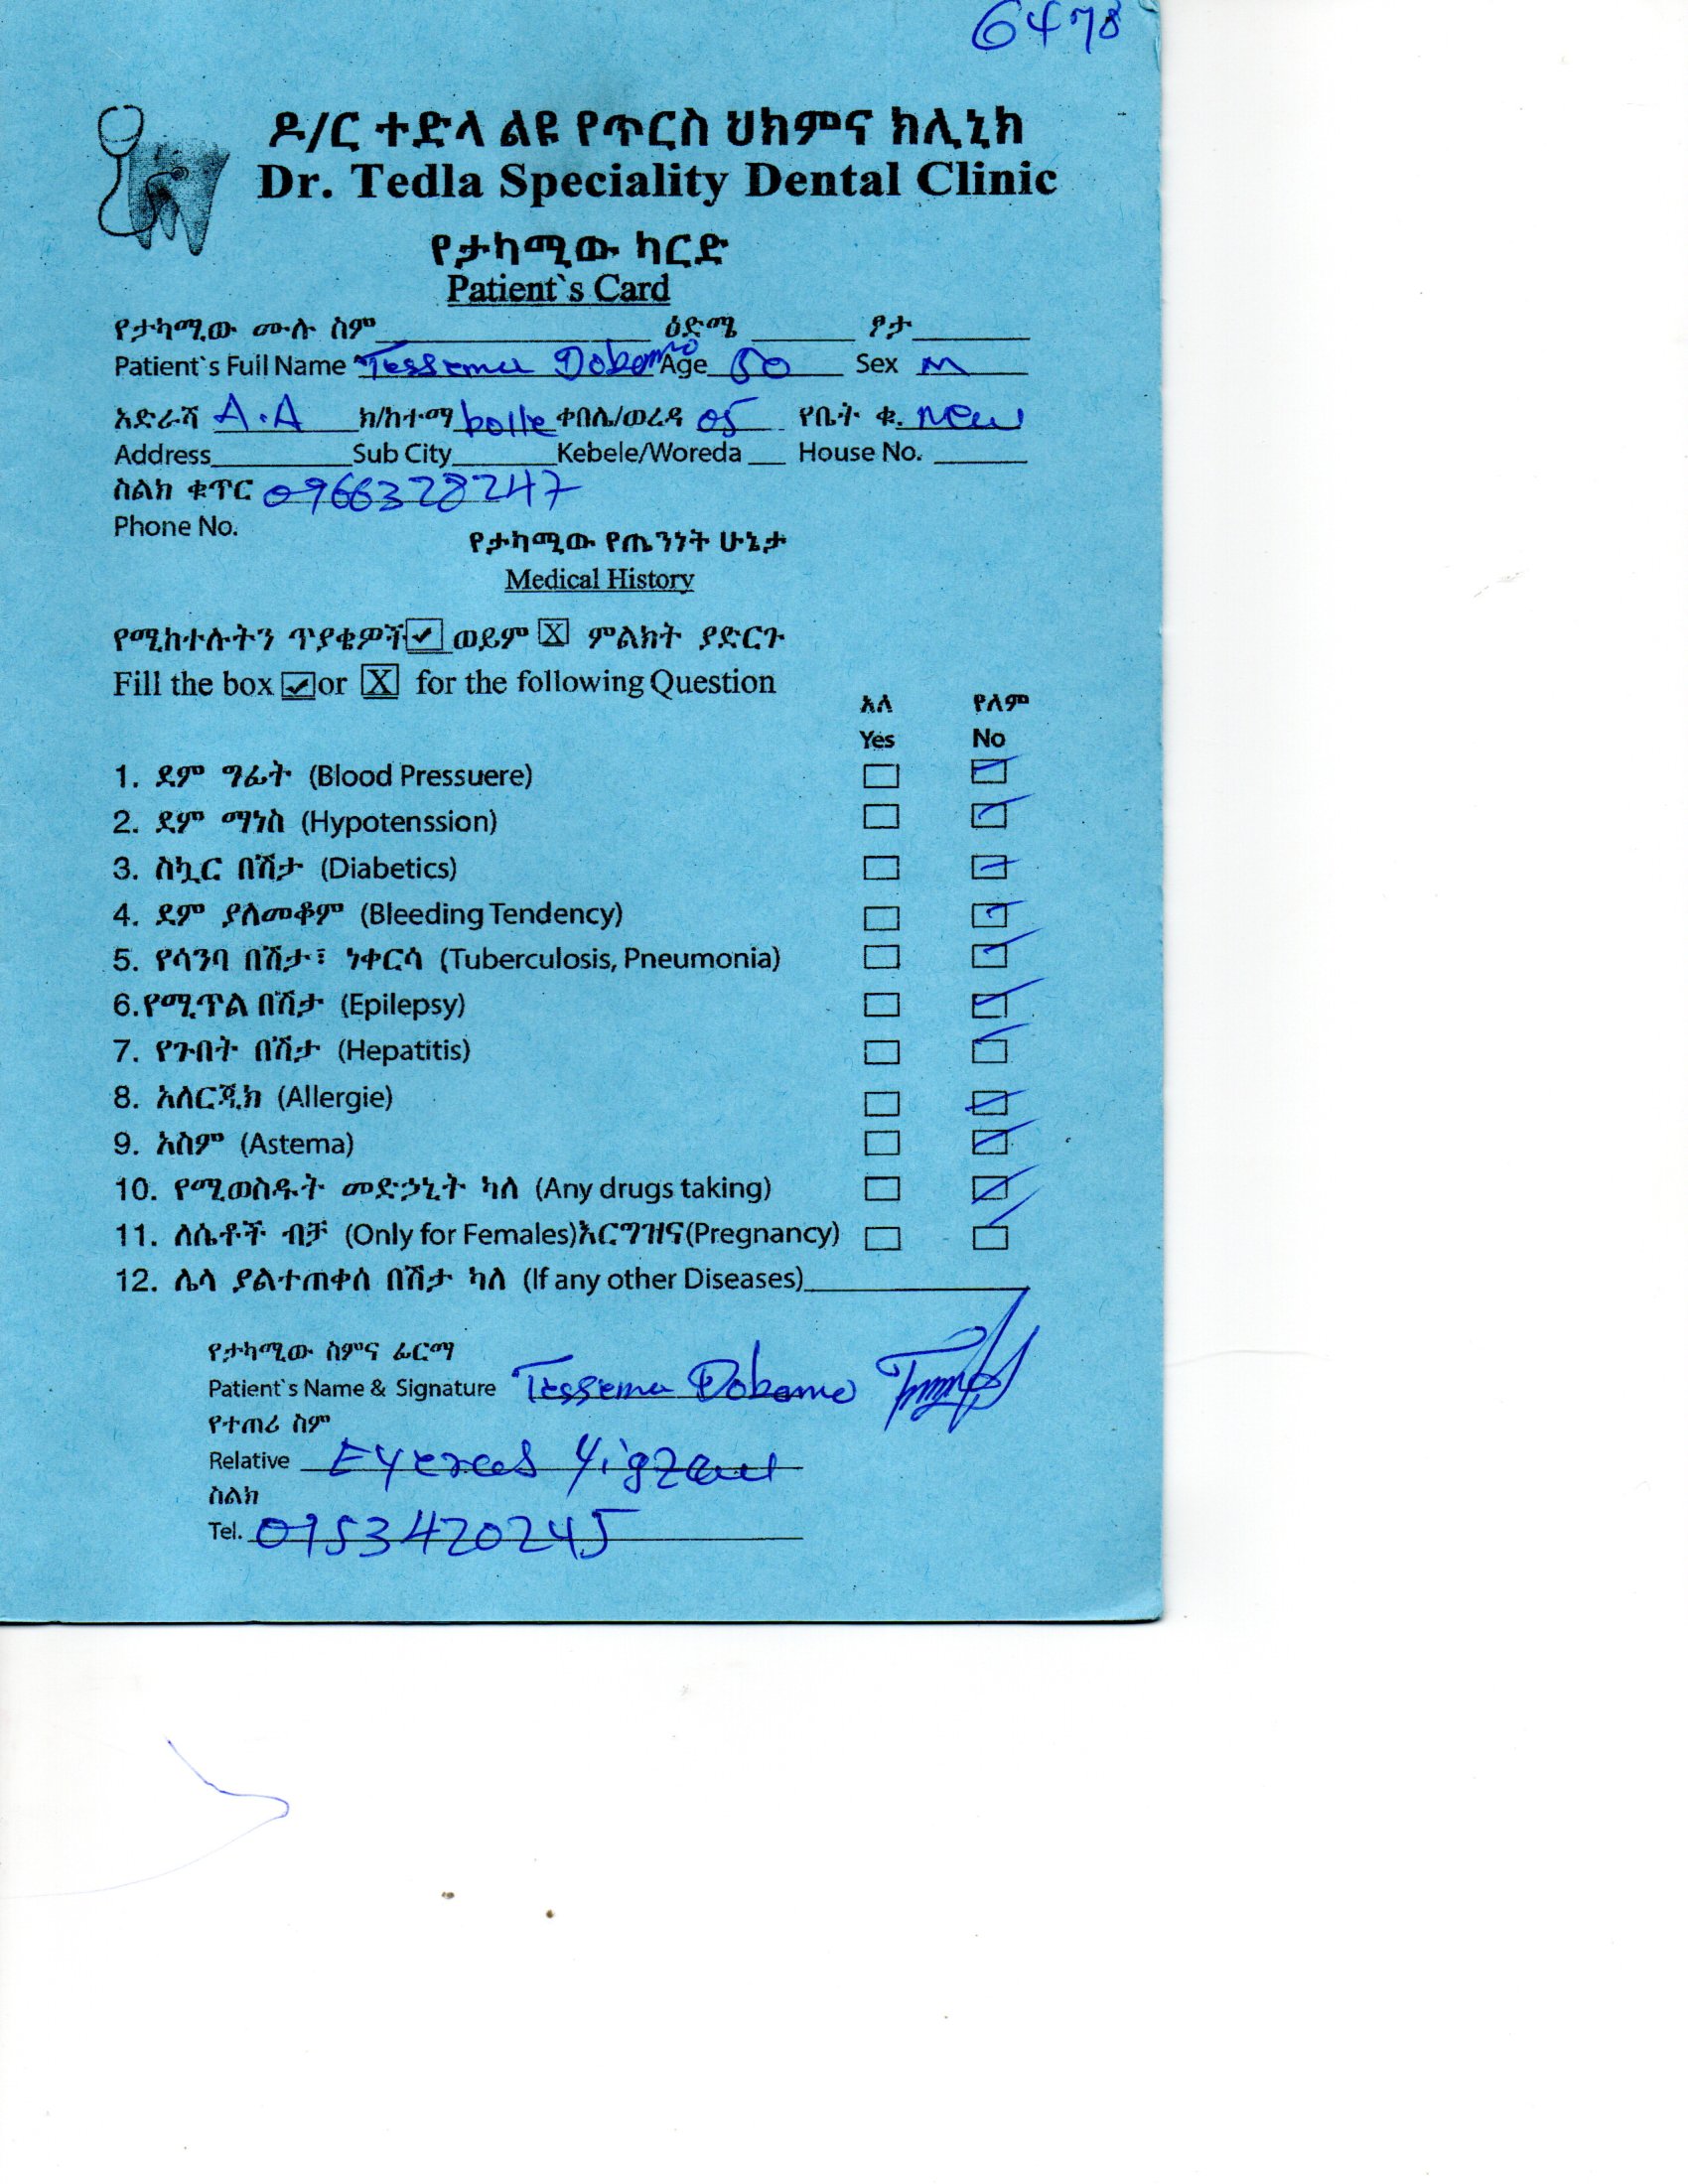 6478
ዶ/ር ተድላ ልዩ የጥርስ ህክምና ክሊኒክ
Dr. Tedla Speciality Dental Clinic
የታካሚው ካርድ
Patient`s Card
የታካሚው ሙሉ ስም ዕድሜ ፆታ
Patient`s Full Name Tessema Dobamo Age 50 Sex M
አድራሻ A.A ክ/ከተማ bolle ቀበሌ/ወረዳ 05 የቤት ቁ. New
Address Sub City Kebele/Woreda House No.
ስልክ ቁጥር 0966328247
Phone No.
የታካሚው የጤንነት ሁኔታ
Medical History
የሚከተሉትን ጥያቄዎች ✓ ወይም X ምልክት ያድርጉ
Fill the box ✓ or X for the following Question
አለ የለም
Yes No
1. ደም ግፊት (Blood Pressuere)
2. ደም ማነስ (Hypotenssion)
3. ስኳር በሽታ (Diabetics)
4. ደም ያለመቆም (Bleeding Tendency)
5. የሳንባ በሽታ፣ ነቀርሳ (Tuberculosis, Pneumonia)
6.የሚጥል በሽታ (Epilepsy)
7. የጉበት በሽታ (Hepatitis)
8. አለርጂክ (Allergie)
9. አስም (Astema)
10. የሚወስዱት መድኃኒት ካለ (Any drugs taking)
11. ለሴቶች ብቻ (Only for Females)እርግዝና(Pregnancy)
12. ሌላ ያልተጠቀሰ በሽታ ካለ (If any other Diseases)
የታካሚው ስምና ፊርማ
Patient`s Name & Signature Tessema Dobamo
የተጠሪ ስም
Relative Eyerus Yigzaw
ስልክ
Tel. 0953420245